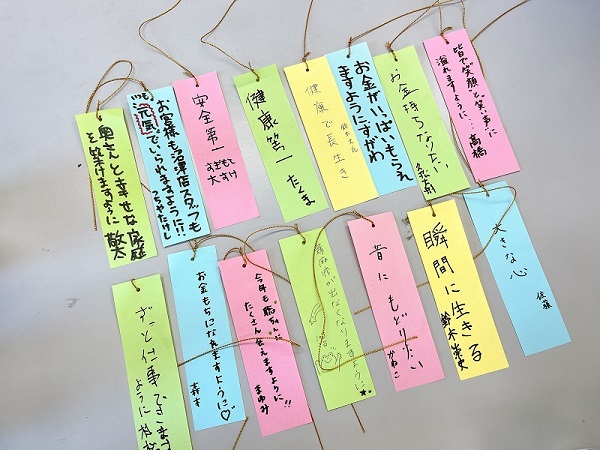 奥さんと幸せな家庭
を築けますように 敬太
お客様も沼津店スタッフも
いつも元気でいられますように!!
つちやたけし
安全第一
すぎもと
大すけ
健康第一
たくま
健康で長生き
お金がいっぱいもらえ
ますように すがわ
お金持ちなりたい
皆で笑顔と笑い声に
溢れますように…
高橋
ずっと仕事できます
ように
お金もちになれますように♡
森本
今年も聴ちゃんに
たくさん会えますように!!
まゆみ
蕁麻疹が出なくなりますように
昔にもどりたい
かねこ
瞬間に生きる
鈴木崇史
大きな心
佐藤